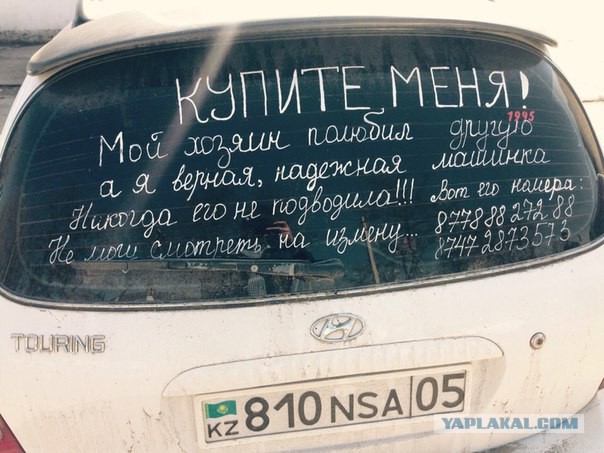 КУПИТЕ МЕНЯ!
1995
Мой хозяин полюбил другую
а я верная, надежная машинка
Никогда его не подводила!!! Вот его номера:
Не могу смотреть на измену... 8778 88 272 88
8747 2873573
TOURING
KZ 810 NSA 05
YAPLAKAL.COM